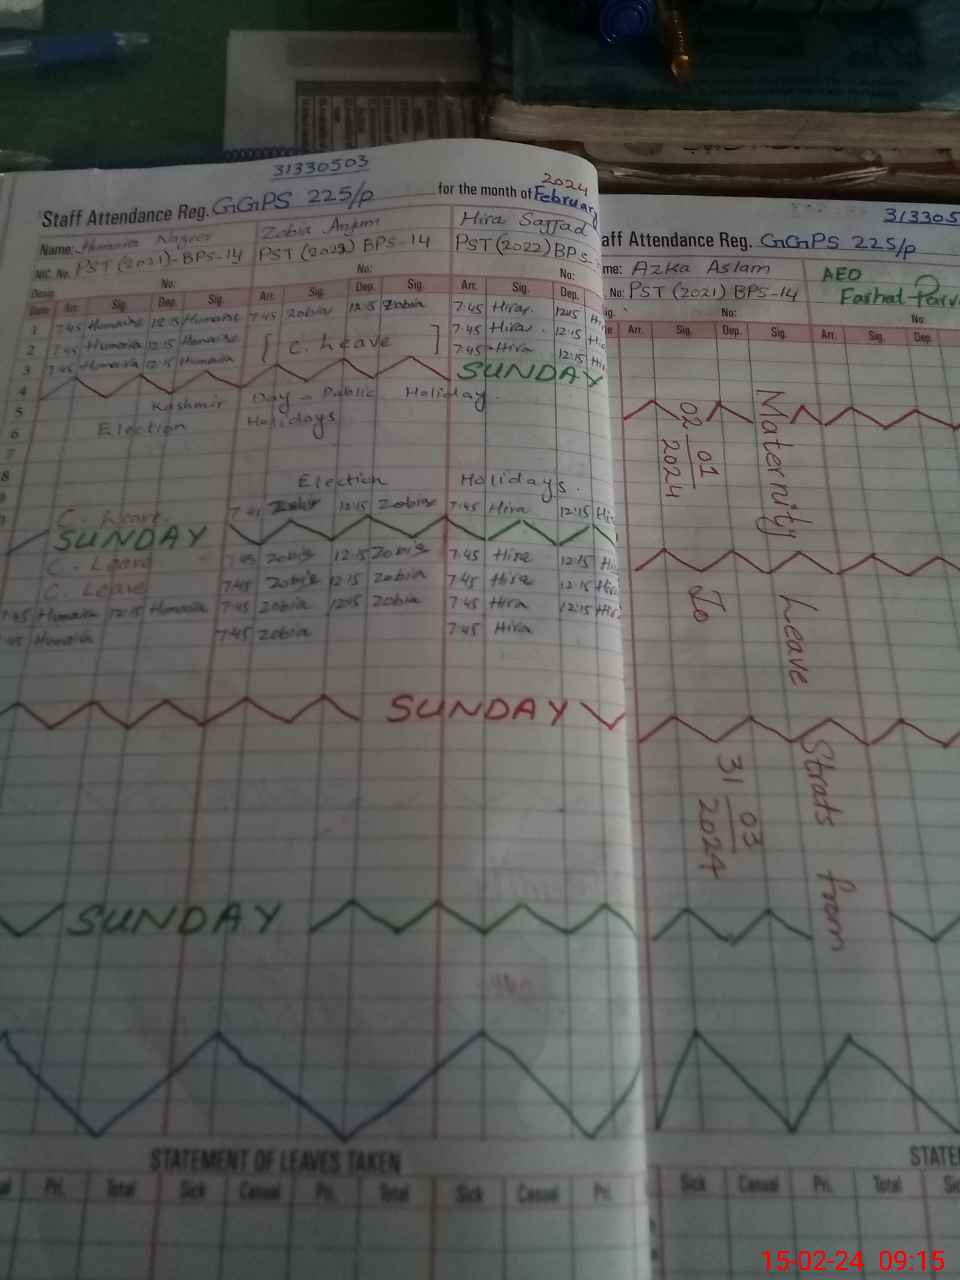 31330503
Staff Attendance Reg. GGPS 225/p for the month of February 2024
Name: Humaira Zobia Anjum Hira Sajjad
NIC. No. PST (2021)-BPS-14 PST (2022) BPS-14 PST (2022) BPS-
No: No: No:
Desig
Date Arr. Sig. Dep. Sig. Arr. Sig. Dep. Sig. Arr. Sig. Dep.
1 7:45 Humaira 12:15 Humaira 7:45 Zobia 12:15 Zobia 7:45 Hira 12:15
2 7:45 Humaira 12:15 Humaira [ C. Leave ] 7:45 Hira 12:15
3 7:45 Humaira 12:15 Humaira 7:45 Hira 12:15
4 SUNDAY
5 Kashmir Day - Public Holiday
6 Election Holidays
7
8 Election Holidays.
C. Leave 7:45 Zobia 12:15 Zobia 7:45 Hira 12:15
SUNDAY
C. Leave 7:45 Zobia 12:15 Zobia 7:45 Hira 12:15
C. Leave 7:45 Zobia 12:15 Zobia 7:45 Hira 12:15
7:45 Humaira 12:15 Humaira 7:45 Zobia 12:15 Zobia 7:45 Hira 12:15
:45 Humaira 7:45 Zobia 7:45 Hira
SUNDAY
SUNDAY
STATEMENT OF LEAVES TAKEN
Pri. Total Sick Casual Pri. Total Sick Casual Pri.
313305
aff Attendance Reg. GGPS 225/p
me: Azka Aslam AEO
No: PST (2021) BPS-14 Farhat
No: No:
Arr. Sig. Dep. Sig. Arr. Sig. Dep.
Maternity Leave Strats from
02 01 2024
To
31 03 2024
STATE
Sick Casual Pri. Total
15-02-24 09:15